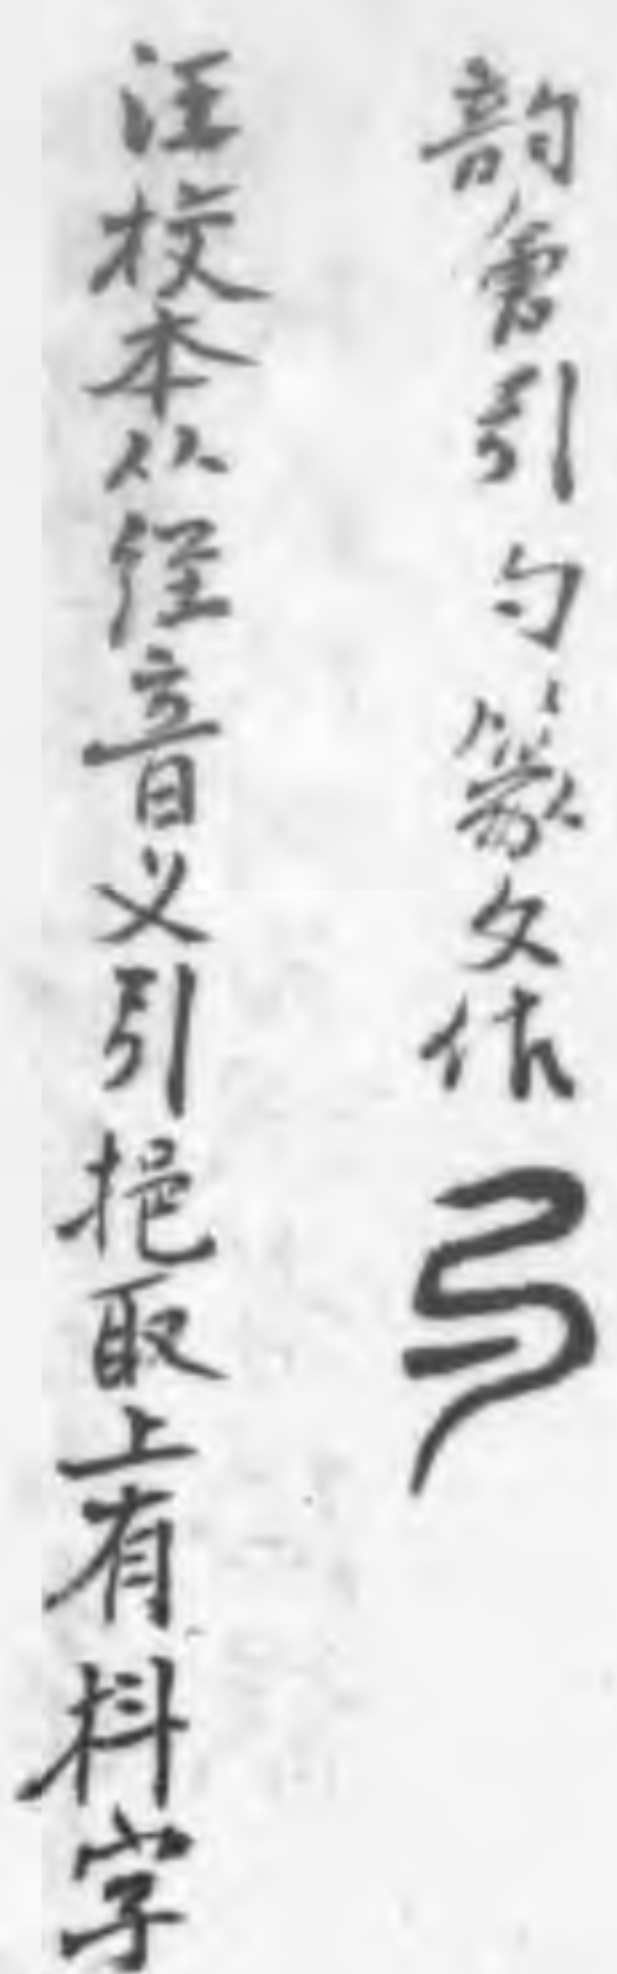 韵會引勺篆文作
汪校本从經音义引挹取上有枓字